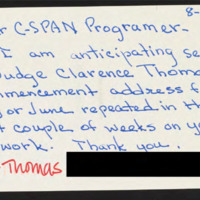 8-
r C-SPAN Programer-
I am anticipating se
udge Clarence Thoma
mmencement address f
or June repeated in th
t couple of weeks on yo
work. Thank you.
Thomas